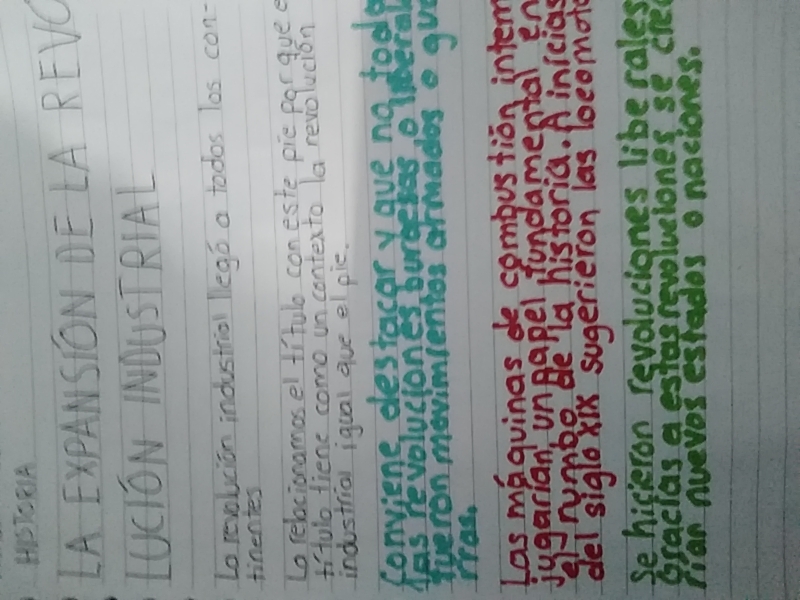 HISTORIA
LA EXPANSIÓN DE LA REVO
LUCIÓN INDUSTRIAL
La revolución industrial llegó a todos los con-
tinentes
Lo relacionamos el título con este pie por que e
título tiene como un contexto la revolución
industrial igual que el pie.
Conviene destacar y que no toda
las revoluciones burgesas o liberal
fueron movimientos armados o gue
rras.
Las máquinas de combustión intern
jugarían un papel fundamental en
el rumbo de la historia. A inicias
del siglo XIX sugerieron las locomoto
Se hicieron revoluciones liberales
Gracias a estas revoluciones se crea
rían nuevos estados o naciones.